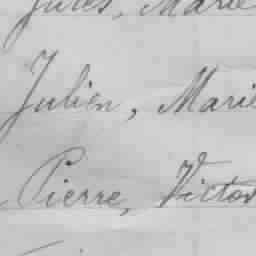 Jules, Marie
Julien, Marie
Pierre, Victor